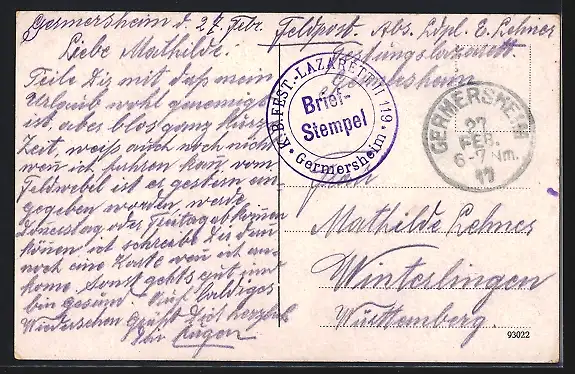 Germersheim d. 27. Febr.
Liebe Mathilde.
Teile Dir mit daß mein
Urlaub wohl genemigt
ist. aber blos ganz kurze
Zeit, weiß auch noch nicht
wen ich fahren kan vom
Feldwebel ist er gestern ein
gegeben worden werde
Donerstag oder Freitag abkommen
können ich schreibe Dir dan
noch eine Karte wen ich an
kome. Sonst gehts gut und
bin gesund. Auf baldiges
Wiedersehen Grüßt Dich herzlich
Dein Eugen
Feldpost. Abs. Ldpl. E. Lehner
Festungslazarett
Germersheim
K.B. FEST.-LAZARETT II 119
Brief-
Stempel
Germersheim
GERMERSHEIM
27
FEB.
6-7 Nm.
17
Frau
Mathilde Lehner
Winterlingen
Württemberg.
93022